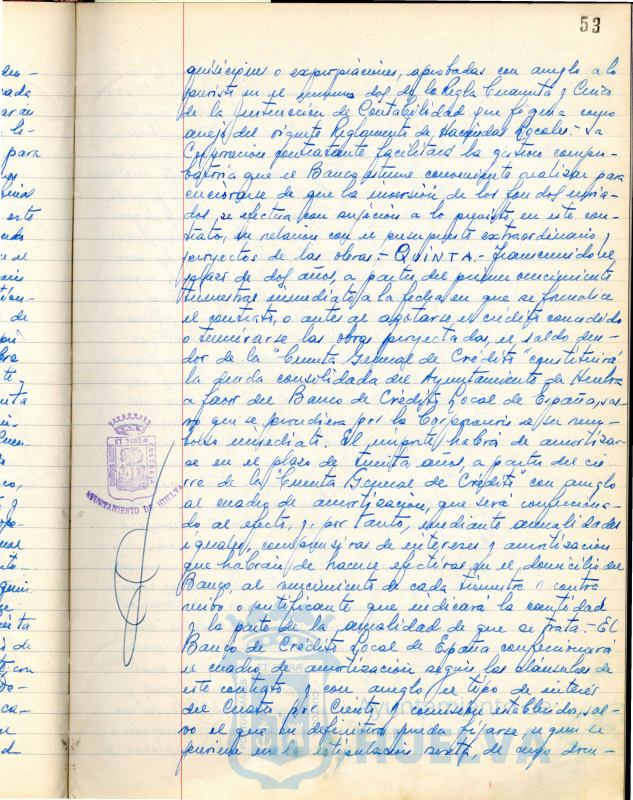 53
quisiciones o expropiaciones, aprobadas con arreglo a lo
previsto en el número dos de la Regla Cuarenta y Cinco
de la Instrucción de Contabilidad que figura como
anejo del vigente Reglamento de Haciendas Locales.- La
Corporación contratante facilitará la gestión comprobatoria
que el Banco estime conveniente realizar para
cerciorarse de que la inversión de los fondos enviados,
se efectúa con sujeción a lo previsto, en este contrato,
en relación con el presupuesto extraordinario y
proyectos de las obras.- QUINTA.- Transcurrido el
plazo de dos años, a partir del primer vencimiento
trimestral inmediato a la fecha en que se formalice
el contrato, o antes al agotarse el crédito concedido
o terminarse las obras proyectadas, el saldo deudor
de la "Cuenta General de Crédito" constituirá
la deuda consolidada del Ayuntamiento de Huelva
a favor del Banco de Crédito Local de España, salvo
que se procediera por la Corporación a su reembolso
inmediato. El importe habrá de amortizarse
en el plazo de treinta años, a partir del cierre
de la "Cuenta General de Crédito" con arreglo
al cuadro de amortización, que será confeccionado
al efecto, y, por tanto, mediante anualidades
iguales, comprensivas de intereses y amortización
que habrán de hacerse efectivas en el domicilio del
Banco, al vencimiento de cada trimestre y contra
recibo justificante que indicará la cantidad
y la parte de la anualidad de que se trata.- El
Banco de Crédito Local de España confeccionará
el cuadro de amortización según las cláusulas de
este contrato y con arreglo al tipo de interés
del Cuatro por Ciento y comisión establecida, salvo
el que en definitiva pueda fijarse según se
previene en la estipulación sexta, de cuyo
AYUNTAMIENTO DE HUELVA
Ayuntamiento
HUELVA